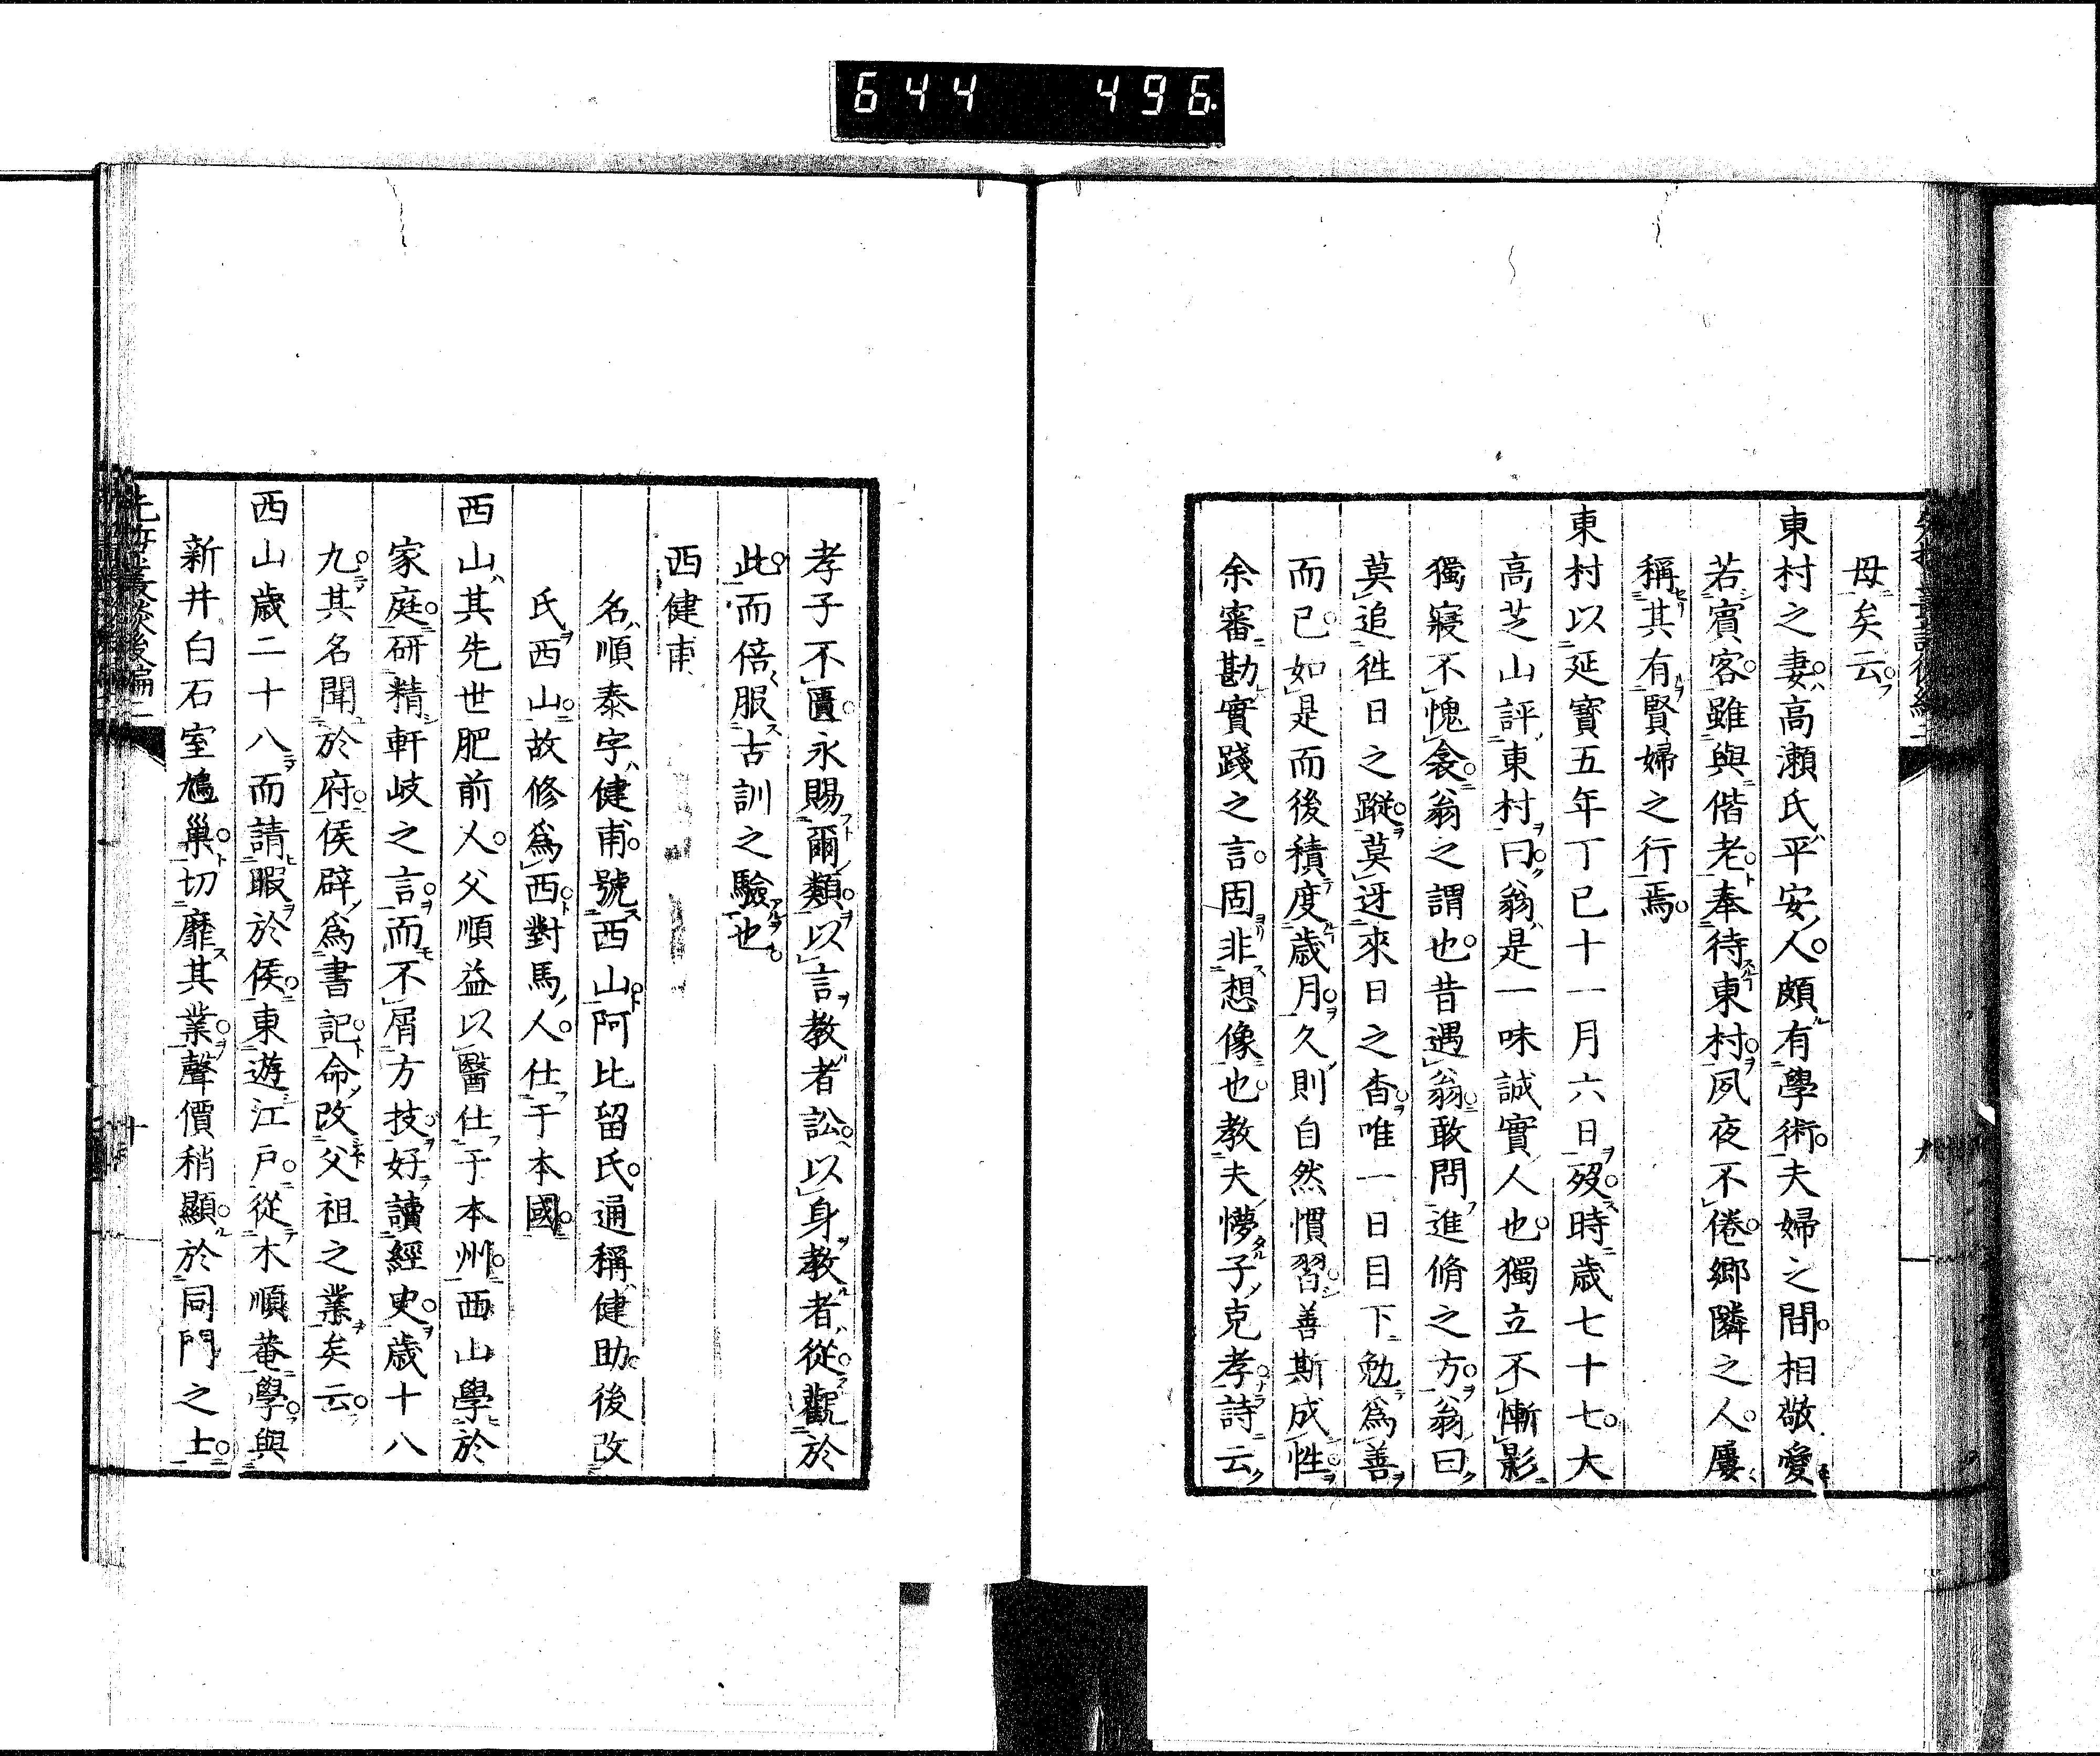 644 496
母矣云
東村之妻高瀨氏平安人頗有學術夫婦之間相敬愛
若賓客雖與偕老奉待東村夙夜不倦鄉隣之人屢
稱其有賢婦之行焉
東村以延寶五年丁巳十一月六日歿時歲七十七大
高芝山評東村曰翁是一味誠實人也獨立不慚影
獨寢不愧衾翁之謂也昔遇翁敢問進脩之方翁曰
莫追徃日之蹤莫迓來日之杳唯一日目下勉爲善
而已如是而後積度歲月久則自然慣習善斯成性
余審勘實踐之言固非想像也教夫懜子克孝詩云
孝子不匱永賜爾類以言教者訟以身教者從觀於
此而倍服古訓之驗也
西健甫
名順泰字健甫號西山阿比留氏通稱健助後改
氏西山故修爲西對馬人仕于本國
西山其先世肥前人父順益以醫仕于本州西山學於
家庭研精軒岐之言而不屑方技好讀經史歲十八
九其名聞於府侯辟爲書記命改父祖之業矣云
西山歲二十八而請暇於侯東遊江戶從木順菴學與
新井白石室鳩巢切靡其業聲價稍顯於同門之士
先哲叢談後編二
十